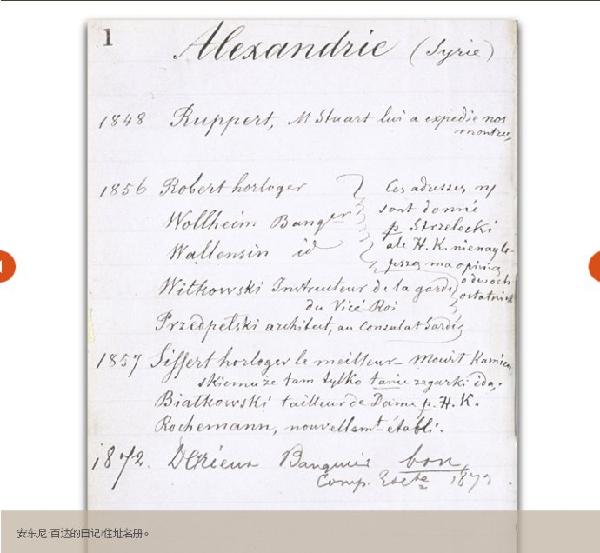 1
Alexandrie (Syrie)
1848 Ruppert, Mr Stuart lui a expedié nos
montres,
1856 Robert horloger
Wollheim Banger
Wallensin id
Ces adresses m
sont donné
p. Strzelecki
ale H. K. nienajle-
psza ma opinią
o dwóch
ostatnich
Witkowski Instructeur de la garde
du Vice Roi
Przedpelski architect, au consulat Sarde
1857 Siffert horloger le meilleur
skiemu że tam tylko tanie zegarki idą.
Bialkowski tailleur de Dame p. H. K.
Rochemann, nouvellemt établi.
1872. Banquier bon
Comp. 1872
安东尼·百达的日记/住址名册。